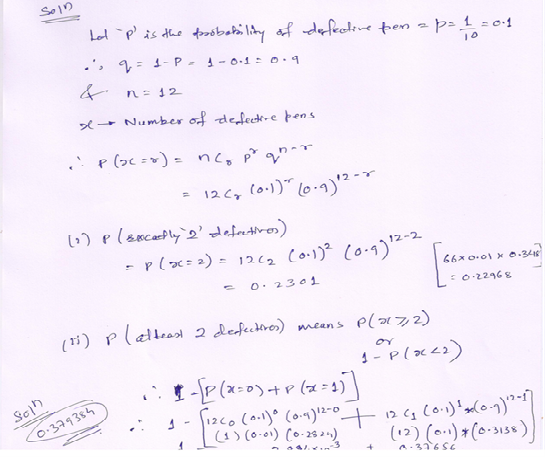 Soln
Let 'P' is the probability of defective pen = p = 1/10 = 0.1
∴ q = 1-P = 1-0.1 = 0.9
& n = 12
x → Number of defective pens
∴ P(x=r) = nCr p^r q^n-r
= 12Cr (0.1)^r (0.9)^12-r
(i) P (exactly '2' defectives)
= P(x=2) = 12C2 (0.1)^2 (0.9)^12-2
= 0.2301
[66×0.01×0.348
= 0.22968
(ii) P (atleast 2 defectives) means P(x≥2)
or
1-P(x<2)
∴ 1-[P(x=0)+P(x=1)]
Soln
0.379384
∴ 1-[12C0 (0.1)^0 (0.9)^12-0 + 12C1 (0.1)^1 *(0.9)^12-1]
(1) (0.01) (12) (0.1)*(0.3138)
+ 0.37656